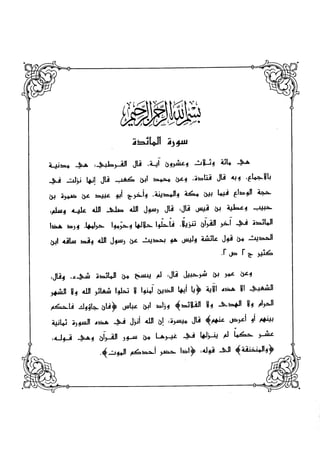 بسم الله الرحمن الرحيم
سورة المائدة
هي مائة وثلاث وعشرون آية. قال القرطبي: هي مدنية
بالاجماع، وبه قال قتادة. وعن محمد ابن كعب قال إنها نزلت في
حجة الوداع فيما بين مكة والمدينة. وأخرج أبو عبيد عن ضمرة بن
حبيب وعطية بن قيس قال: قال رسول الله صلى الله عليه وسلم:
المائدة في آخر القرآن تنزيلا، فأحلوا حلالها وحرّموا حرامها. ورد هذا
الحديث من قول عائشة وليس هو بحديث عن رسول الله وقد ساقه ابن
كثير ج ٢ ص ٢.
وعن عمر بن شرحبيل قال: لم ينسخ من المائدة شيء. وقال
الشعبي الا هذه الآية ﴿يا أيها الذين آمنوا لا تحلوا شعائر الله ولا الشهر
الحرام ولا الهدى ولا القلائد﴾ وزاد ابن عباس ﴿فإن جاؤوك فاحكم
بينهم أو أعرض عنهم﴾ قال ميسرة: إن الله أنزل في هذه السورة ثمانية
عشر حكماً لم ينزلها في غيرها من سور القرآن وهي قوله:
﴿والمنخنقة﴾ الى قوله: ﴿اذا حضر أحدكم الموت﴾.